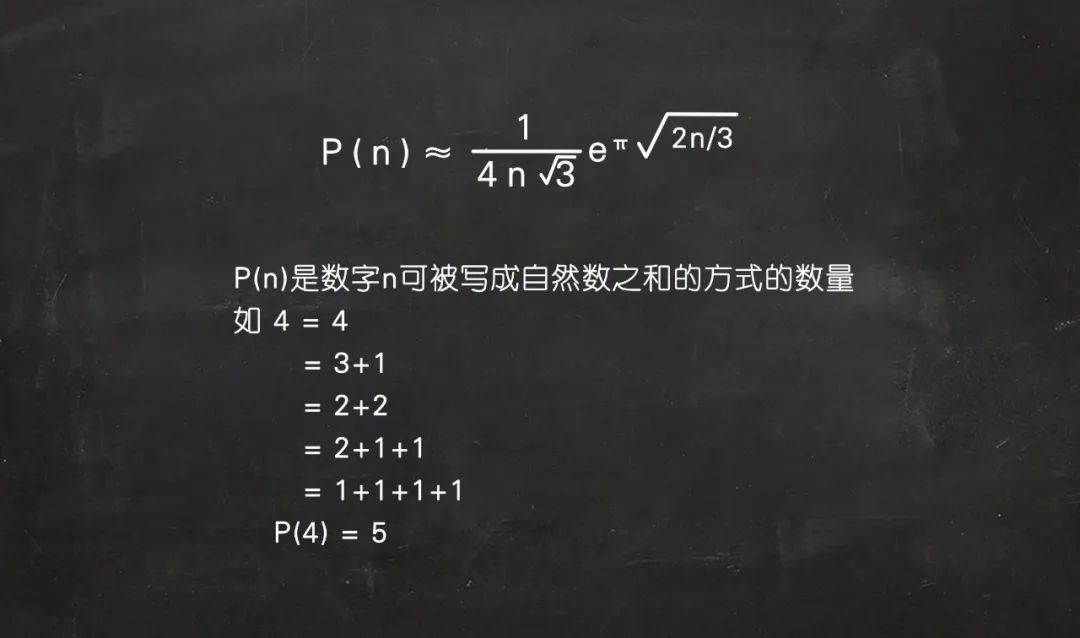 P(n) ≈ 1/(4n√3) e^π√(2n/3)
P(n)是数字n可被写成自然数之和的方式的数量
如 4 = 4
= 3+1
= 2+2
= 2+1+1
= 1+1+1+1
P(4) = 5